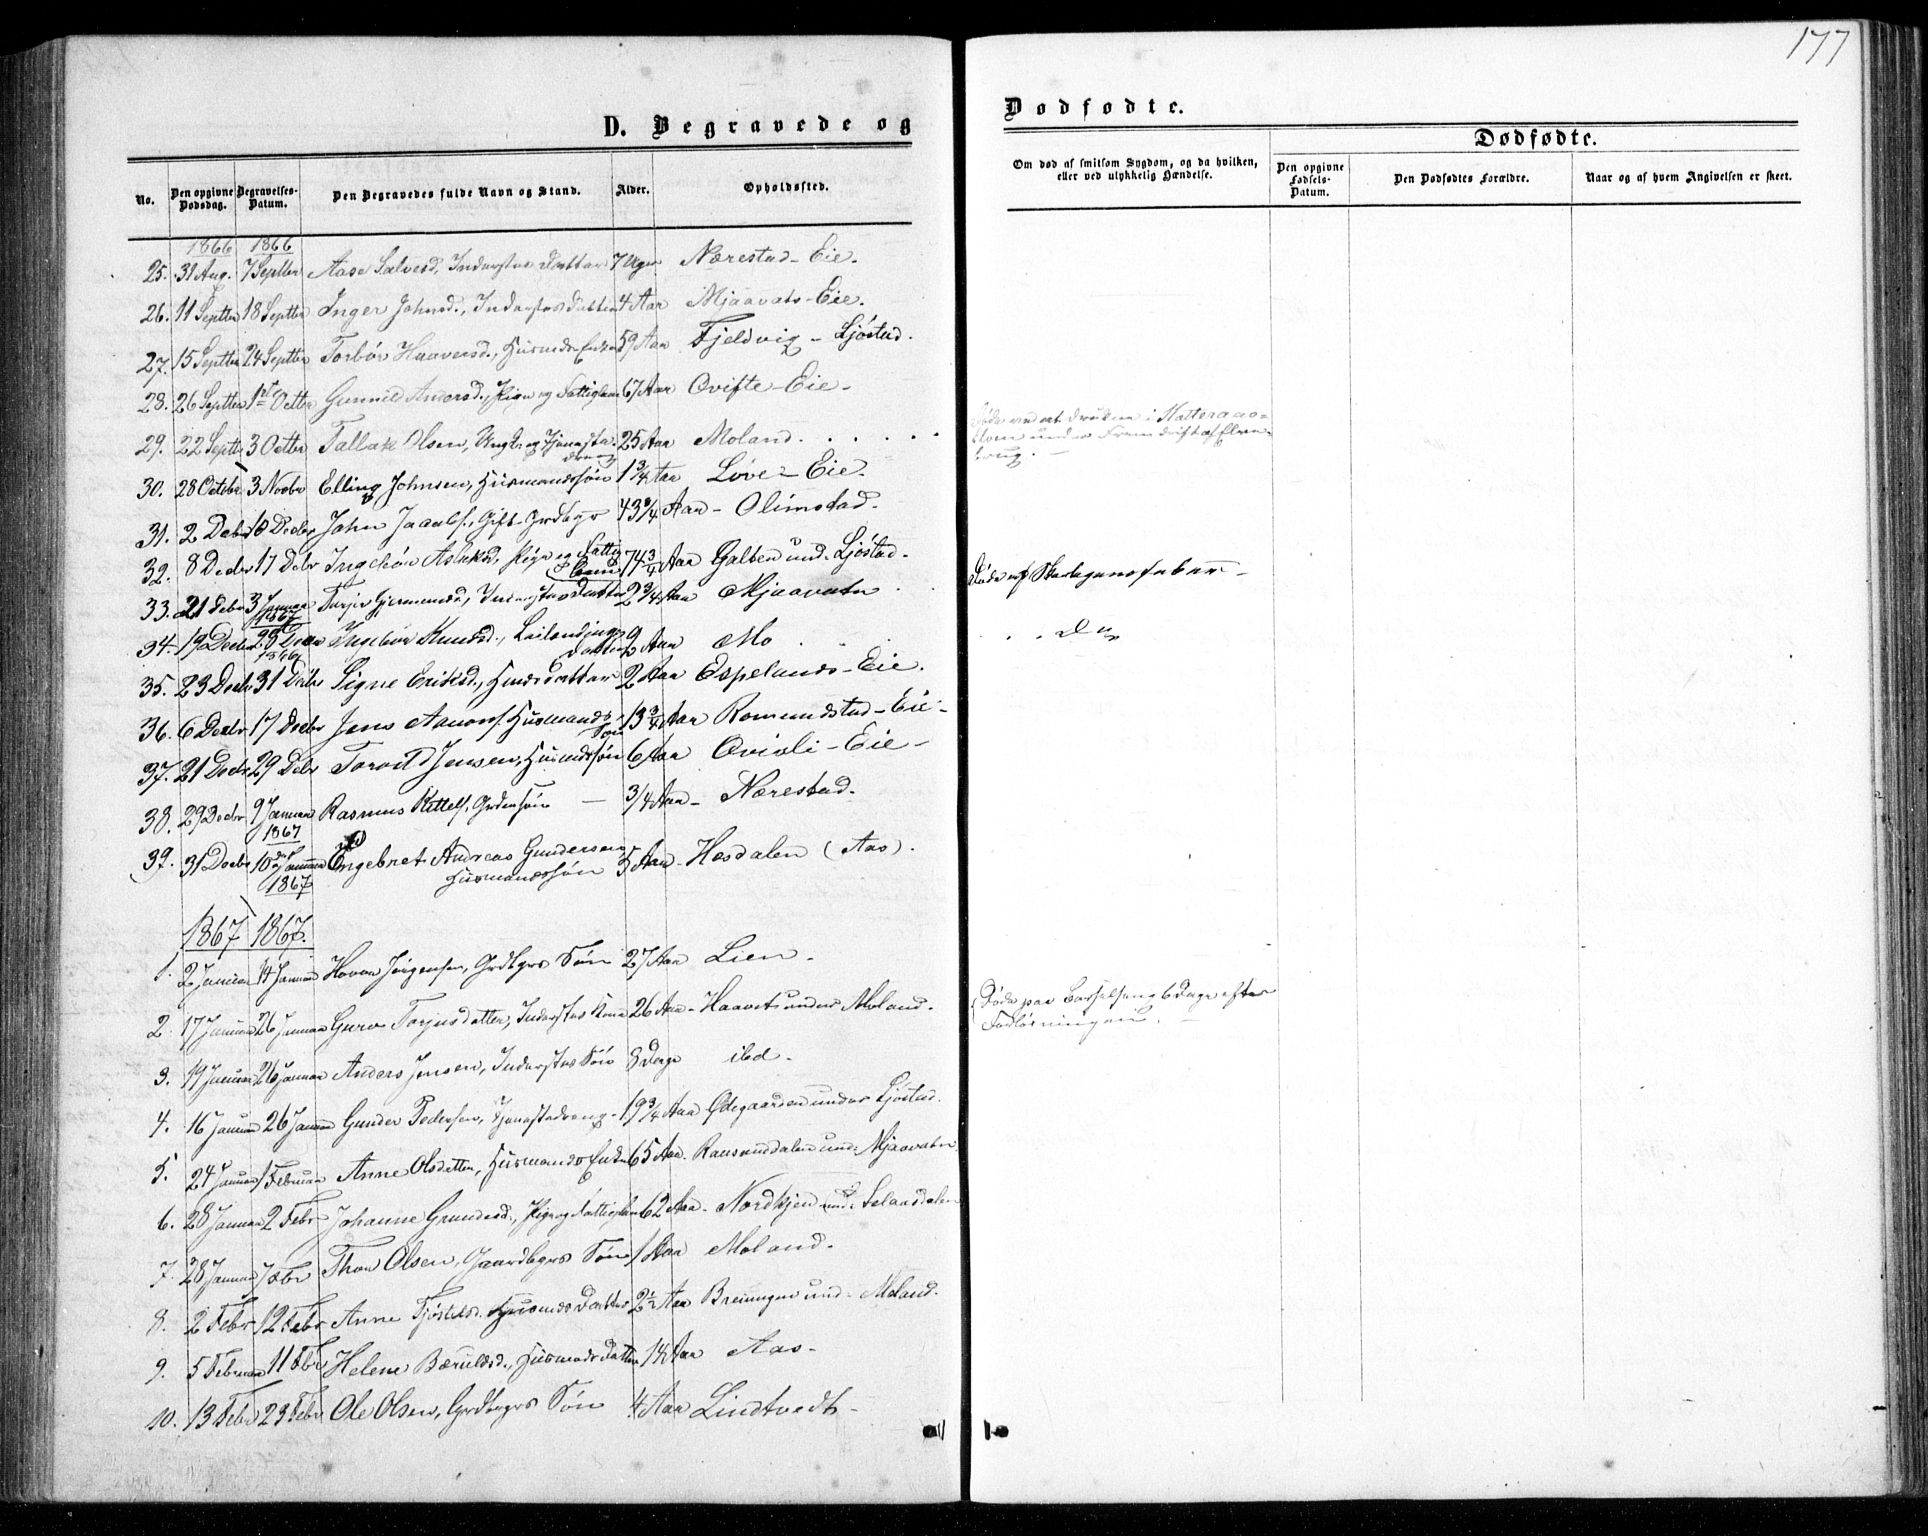 177
D. Begravede og
Dødfødte.
No.
Den opgivne Dødsdag.
Begravelses-Datum.
Den Begravedes fulde Navn og Stand.
Alder.
Opholdssted.
Om død af smitsom Sygdom, og da hvilken, eller ved ulykkelig Hændelse.
Dødfødte.
Den opgivne Fødsels-Datum.
Den Dødfødtes Forældre.
Naar og af hvem Angivelsen er skeet.
1866 1866
25. 31 Aug. 7 Septbr Aase Salvesd., Inderstes Datter 7 Uger Nærestad-Eie.
26. 11 Septbr 18 Septbr Inger Johnsd., Inderstes Datter 4 Aar Mjaavats-Eie.
27. 15 Septbr 24 Septbr Torbør Haaversd., Husmds Enke 59 Aar Fjeldvig - Ljøstad.
28. 26 Septbr 1ste Octbr Gunnild Andersd., Pige og Fattiglem 67 Aar Ovifte-Eie-
29. 22 Septbr 3 Octbr Tallak Olsen, Ungk. og Tjenestedreng 25 Aar Moland. . . . . .
Døde ved at drukne i under Fremdrift af
30. 28 Octobr 3 Novbr Elling Johnsen, Husmandssøn 1 3/4 Aar Løve-Eie.
31. 2 Decbr 10 Decbr John Jacobs., Gift Grdbgr 43 3/4 Aar - Olimstad.
32. 8 Decbr 17 Decbr Ingebør Aslaksd., Pige og Fattiglem 74 3/4 Aar Galten und. Ljøstad.
33. 21 Decbr 3 Januar 1867 Inderstes Datter 2 3/4 Aar Mjaavatn . .
Døde af Skarlagensfeber -
34. 19 Decbr 28 Decbr 1866 Ingebør Knudsd., Leilændings Datter 9 Aar Mo . .
. . Do
35. 23 Decbr 31 Decbr Signe Eriksd., Husmds Datter 2 Aar Espelands-Eie.
36. 6 Decbr 17 Decbr Jens Aanons. Husmands Søn 13 3/4 Aar Romundstad-Eie-
37. 21 Decbr 29 Decbr Torvild Jensen, Husmdssøn 6 Aar Ovioli-Eie-
38. 29 Decbr 9 Januar 1867 Rasmus Kittels., Grdmsøn — 3/4 Aar - Nærestad.
39. 31 Decbr 10 Januar 1867 Engebret Andreas Gundersen, Husmandssøn 5 Aar - Hesdalen (Aas).
1867 1867.
1. 2 Januar 14 Januar Jørgensen, Grdbgrs Søn 27 Aar Lien -
2. 17 Januar 26 Januar Guro Torjusdatter, Inderstes Kone 26 Aar - Haavet under Moland.
Døde paa Barselseng 6 Dage efter Forløsningen. -
3. 19 Januar 26 Januar Anders Jensen, Inderstes Søn 8 Dage ibd -
4. 16 Januar 26 Januar Gunder Pedersen, Tjenestedreng - 19 3/4 Aar Ødegaarden under Ljøstad.
5. 24 Januar 1 Februar Anne Olsdatter, Husmands Enke 65 Aar. und. Mjaavatn.
6. 28 Januar 2 Febr Johanne Gundersd., Pige og Fattiglem 62 Aar - Nordkjen und. Selaasdalen
7. 28 Januar 7 Febr Thor Olsen, Gaardbgrs Søn 1 Aar Moland.
8. 2 Febr 12 Febr Anne Tjøstelsd. Husmds Datter 2 1/2 Aar und. Moland.
9. 5 Februar 11 Febr Helene Bærulsd., Husmds Datter Aar Aas -
10. 13 Febr 23 Febr Ole Olsen, Grdbgrs Søn 4 Aar Lindtvedt -